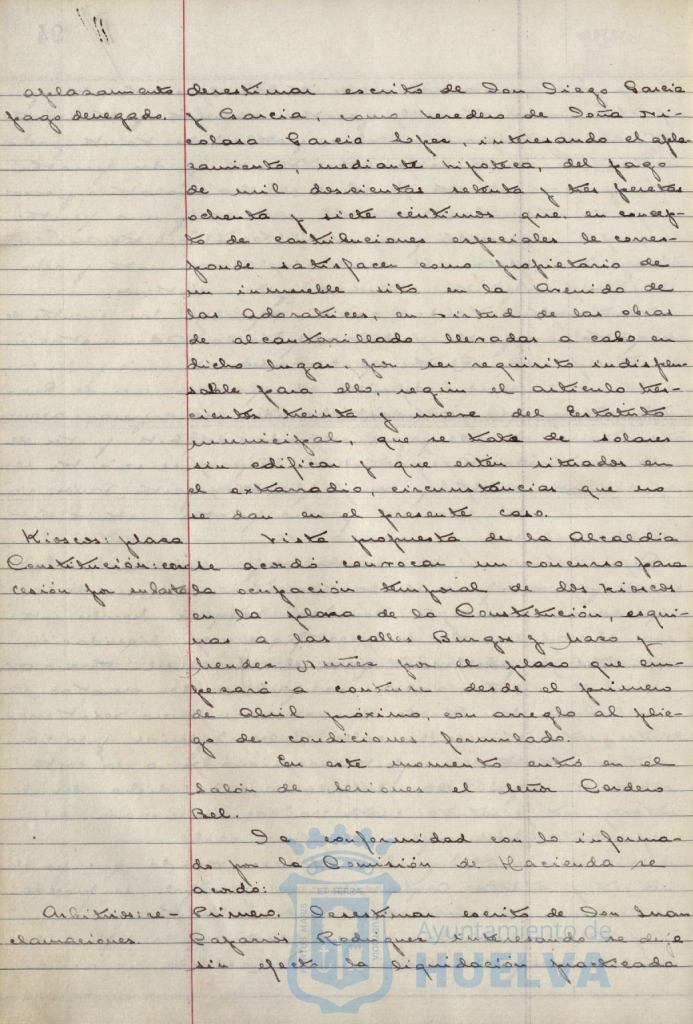 aplazamiento desestimar escrito de Don Diego García
pago denegado. y García, como heredero de Doña Ni-
colasa García López, interesando el apla-
zamiento, mediante hipoteca, del pago
de mil doscientas setenta y tres pesetas
ochenta y siete céntimos que, en concep-
to de contribuciones especiales le corres-
ponde satisfacer como propietario de
un inmueble sito en la Avenida de
las Adoratrices, en virtud de las obras
de alcantarillado llevadas a cabo en
dicho lugar, por ser requisito indispen-
sable para ello, según el artículo tres-
cientos treinta y nueve del Estatuto
municipal, que se trate de solares
sin edificar y que estén situados en
el extrarradio, circunstancias que no
se dan en el presente caso.
Kioscos: plaza Vista propuesta de la Alcaldía
Constitución: con- se acordó convocar un concurso para
cesión por subasta la ocupación temporal de dos kioscos
en la plaza de la Constitución, esqui-
nas a las calles Burgos y Mazo y
Mendez Núñez por el plazo que em-
pezará a contarse desde el primero
de Abril próximo, con arreglo al plie-
go de condiciones formulado.
En este momento entró en el
Salón de Sesiones el señor Cordero
Bel.
De conformidad con lo informa-
do por la Comisión de Hacienda se
acordó:
Arbitrios: re- Primero. Desestimar escrito de Don Juan
clamaciones. Caparrós Rodríguez interesando se deje
sin efecto la liquidación practicada
Ayuntamiento de
HUELVA